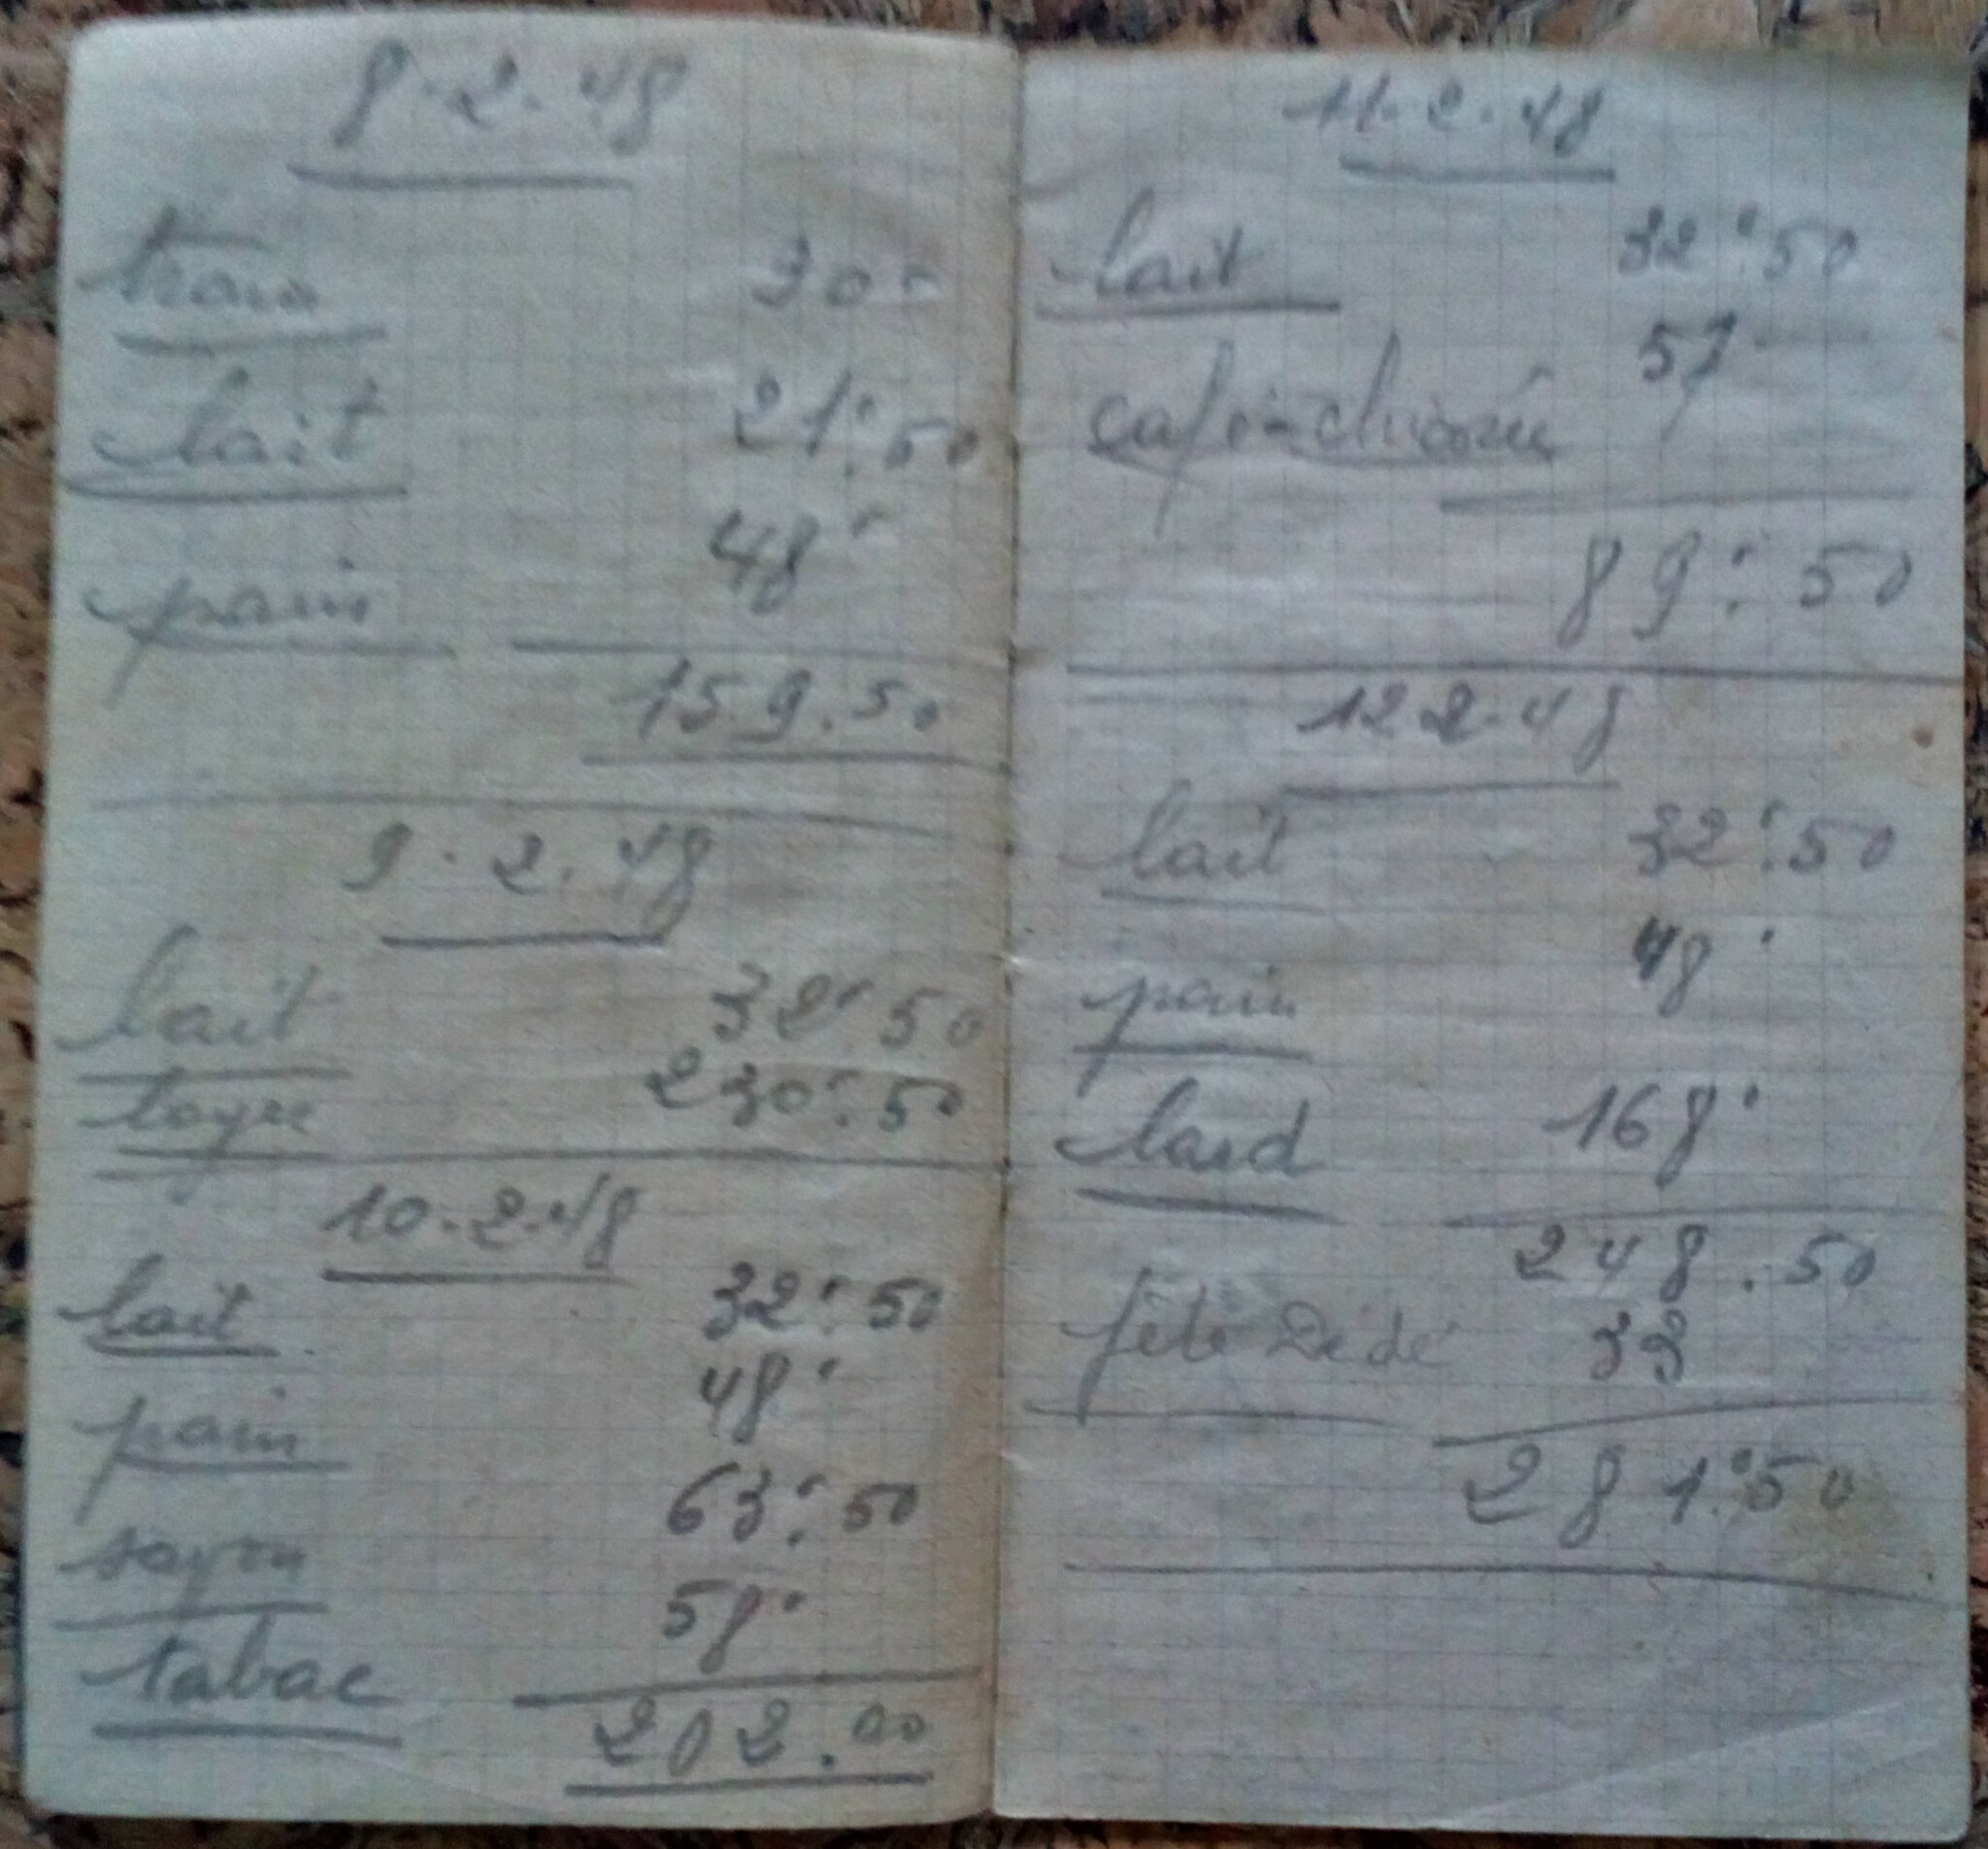 8.2.48
train 30"
lait 21":50
pain 48"
159.50
9.2.48
lait 32":50
loyer 230":50
10.2.48
lait 32":50
pain 48"
savon 63":50
tabac 58"
202.00
11.2.48
lait 32":50
café-chicorée 57
89":50
12 2.48
lait 32":50
pain 48"
lard 168"
248.50
fête Dédé 33
281":50